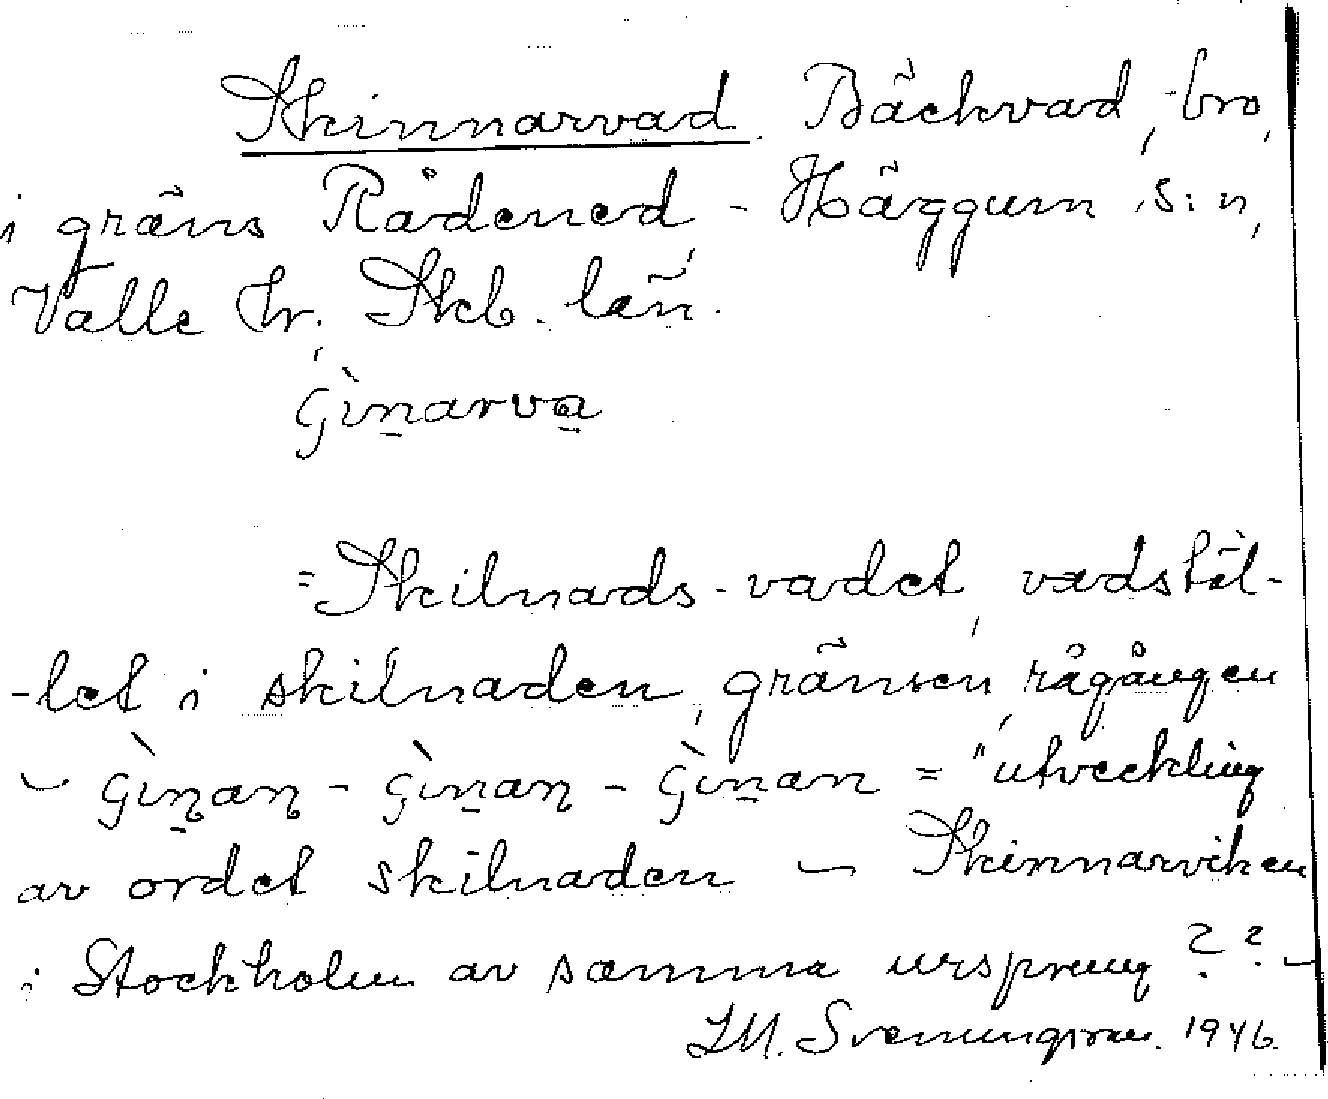 Skinnarvad. Bäckvad, -bro,
i gräns Rådened, - Häggum s:n,
Valle hr, Skb. län.
Gìn̠arva̠
= Skilnads-vadet, vadstäl-
-let i skilnaden, gränsen, rågången
- Gìn̠an - Gìn̠an - Gìn̠an = "utveckling
av ordet skilnaden — Skinnarviken
i Stockholm av samma ursprung ? ? -
Svenungsson. 1946.